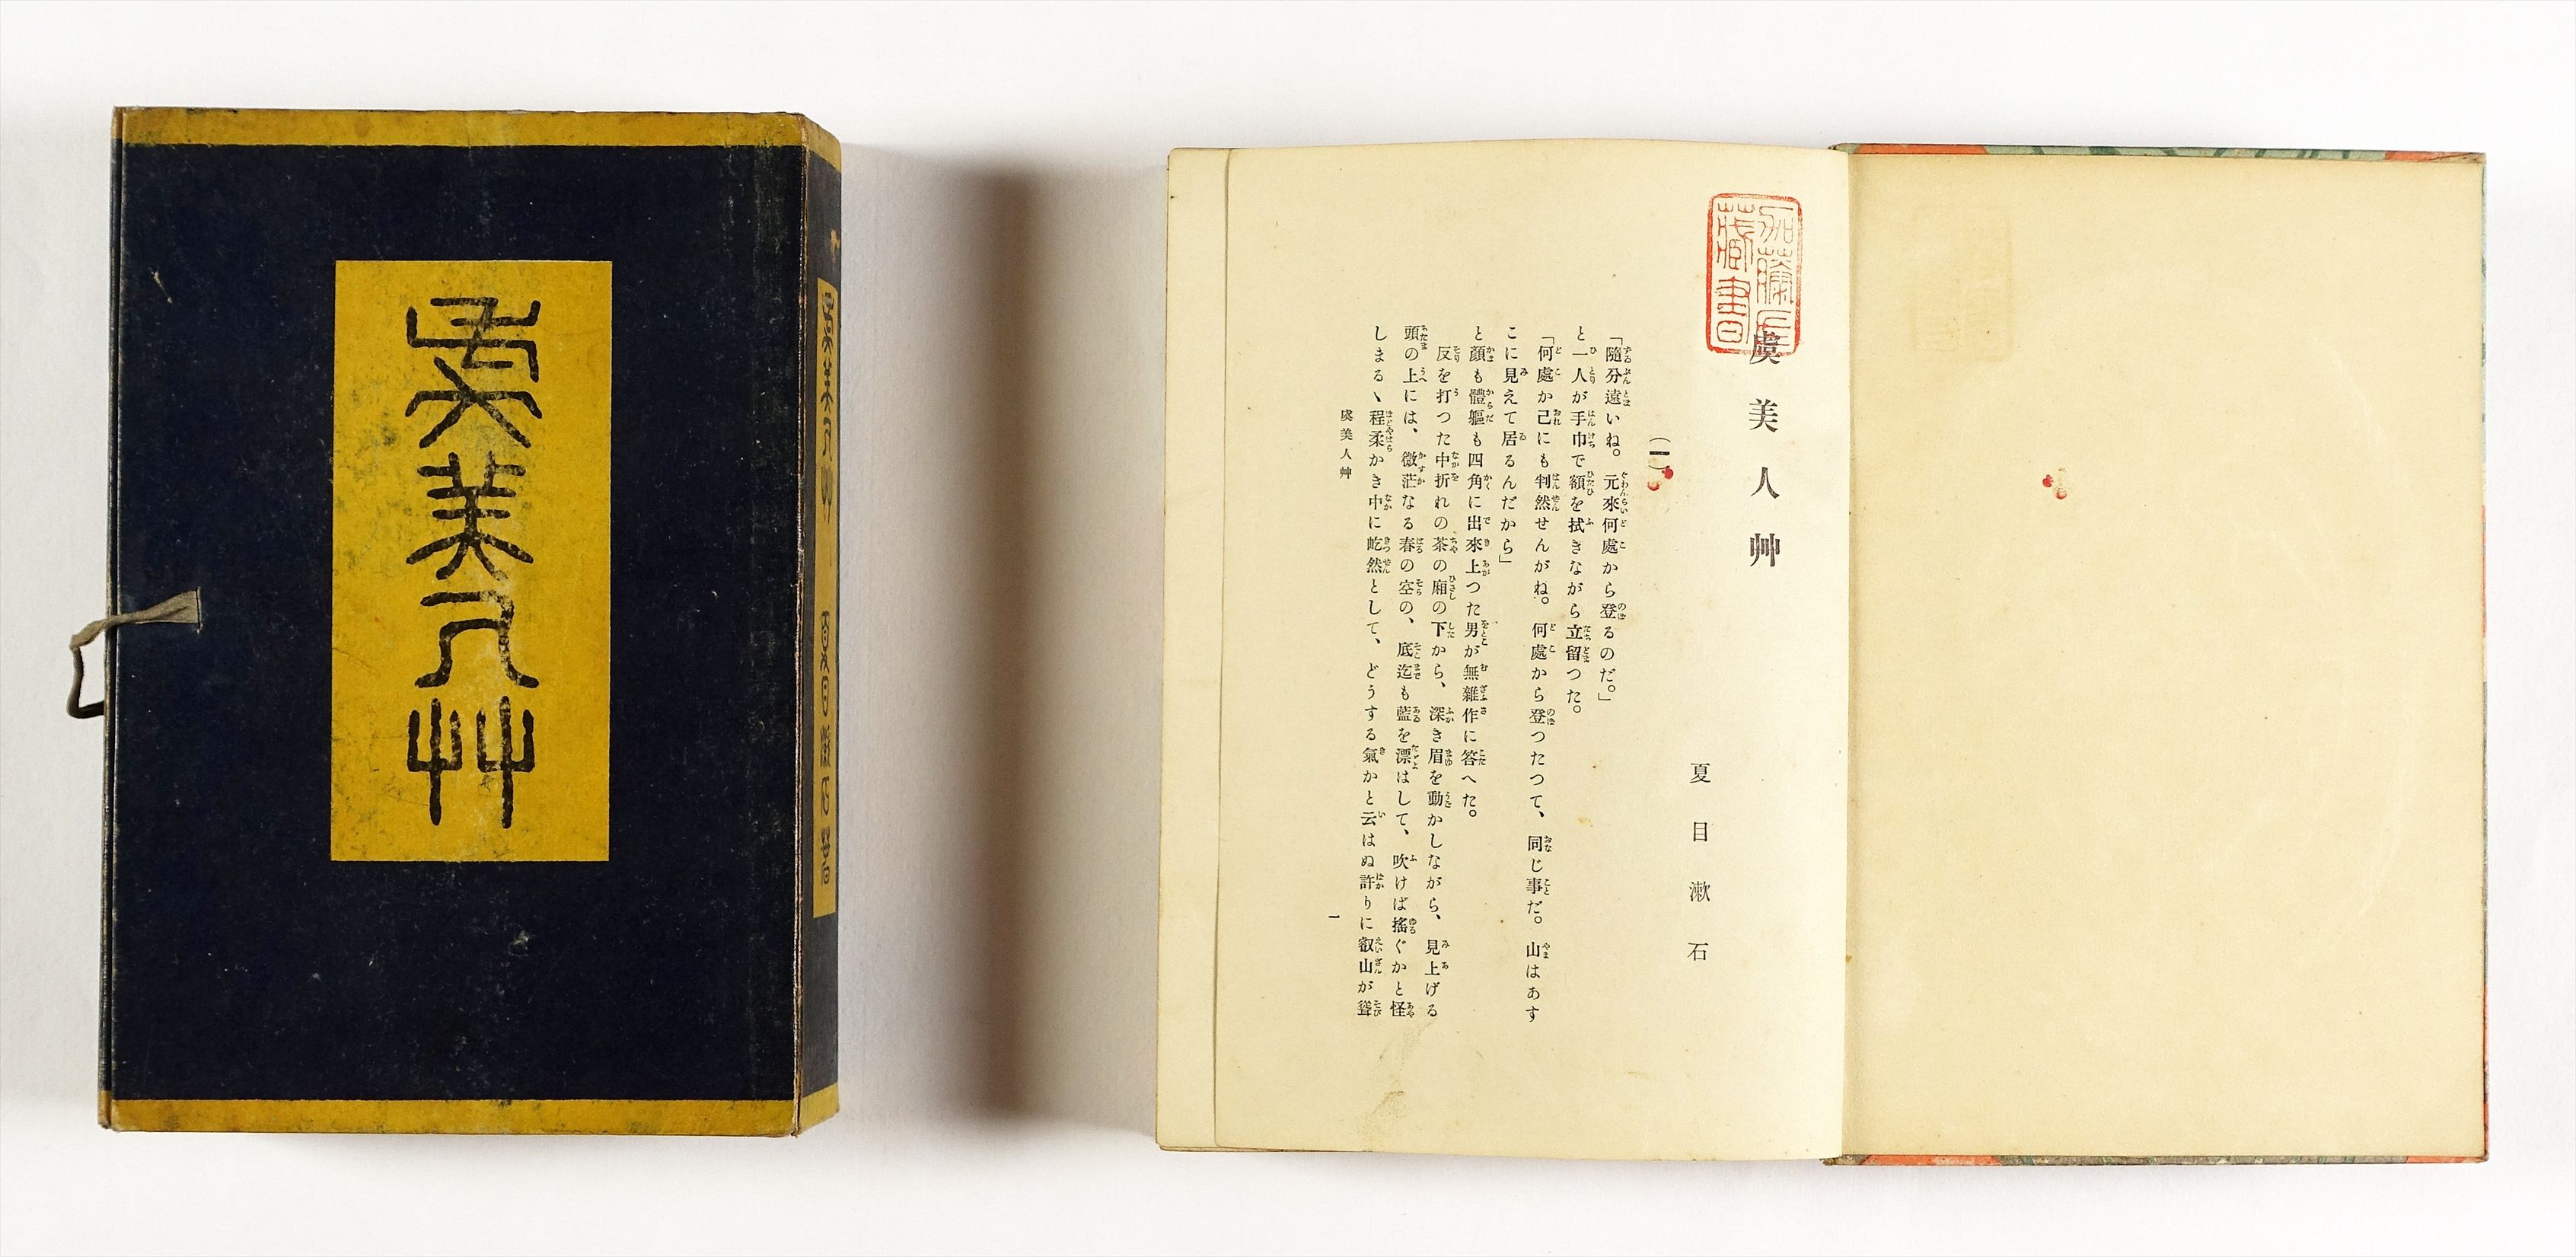 虞美人艸
虞美人艸
夏目漱石著
虞美人艸
夏目漱石
(一)
「隨分遠いね。元來何處から登るのだ。」
と一人が手巾で額を拭きながら立留つた。
「何處か己にも判然せんがね。何處から登つたつて、同じ事だ。山はあす
こに見えて居るんだから」
と顏も體軀も四角に出來上つた男が無雜作に答へた。
反を打つた中折れの茶の廂の下から、深き眉を動かしながら、見上げる
頭の上には、微茫なる春の空の、底迄も藍を漂はして、吹けば搖ぐかと怪
しまるゝ程柔かき中に屹然として、どうする氣かと云はぬ許りに叡山が聳
虞美人艸
一